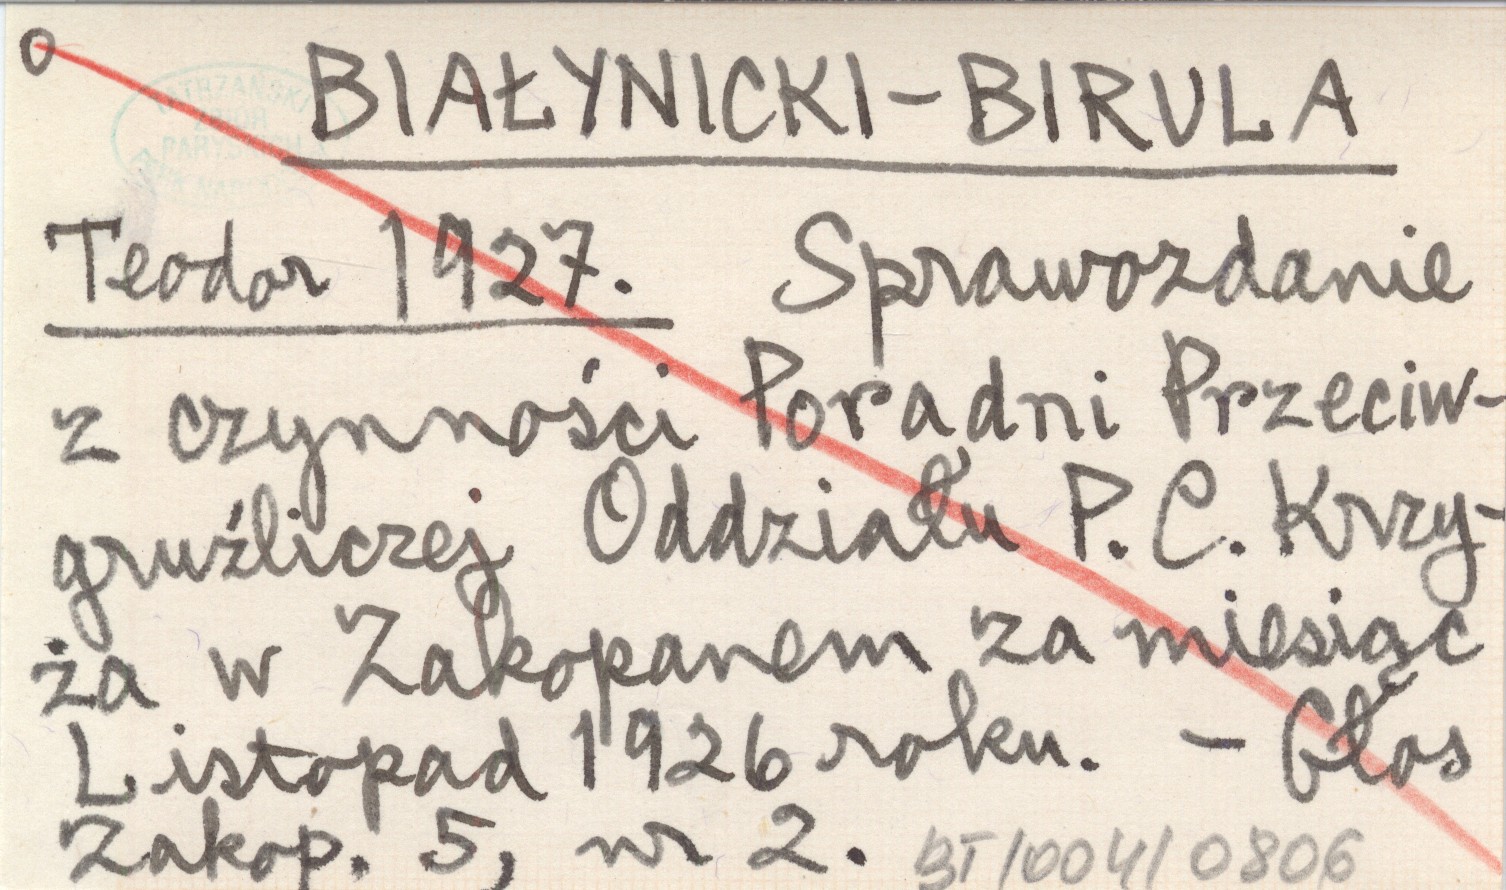 O
TATRZAŃSKI
ZBIÓR
BIAŁYNICKI-BIRULA
Teodor 1927. Sprawozdanie
z czynności Poradni Przeciw-
gruźliczej Oddziału P. C. Krzy-
ża w Zakopanem za miesiąc
Listopad 1926 roku. - Głos
Zakop. 5, nr 2. BT/004/0806